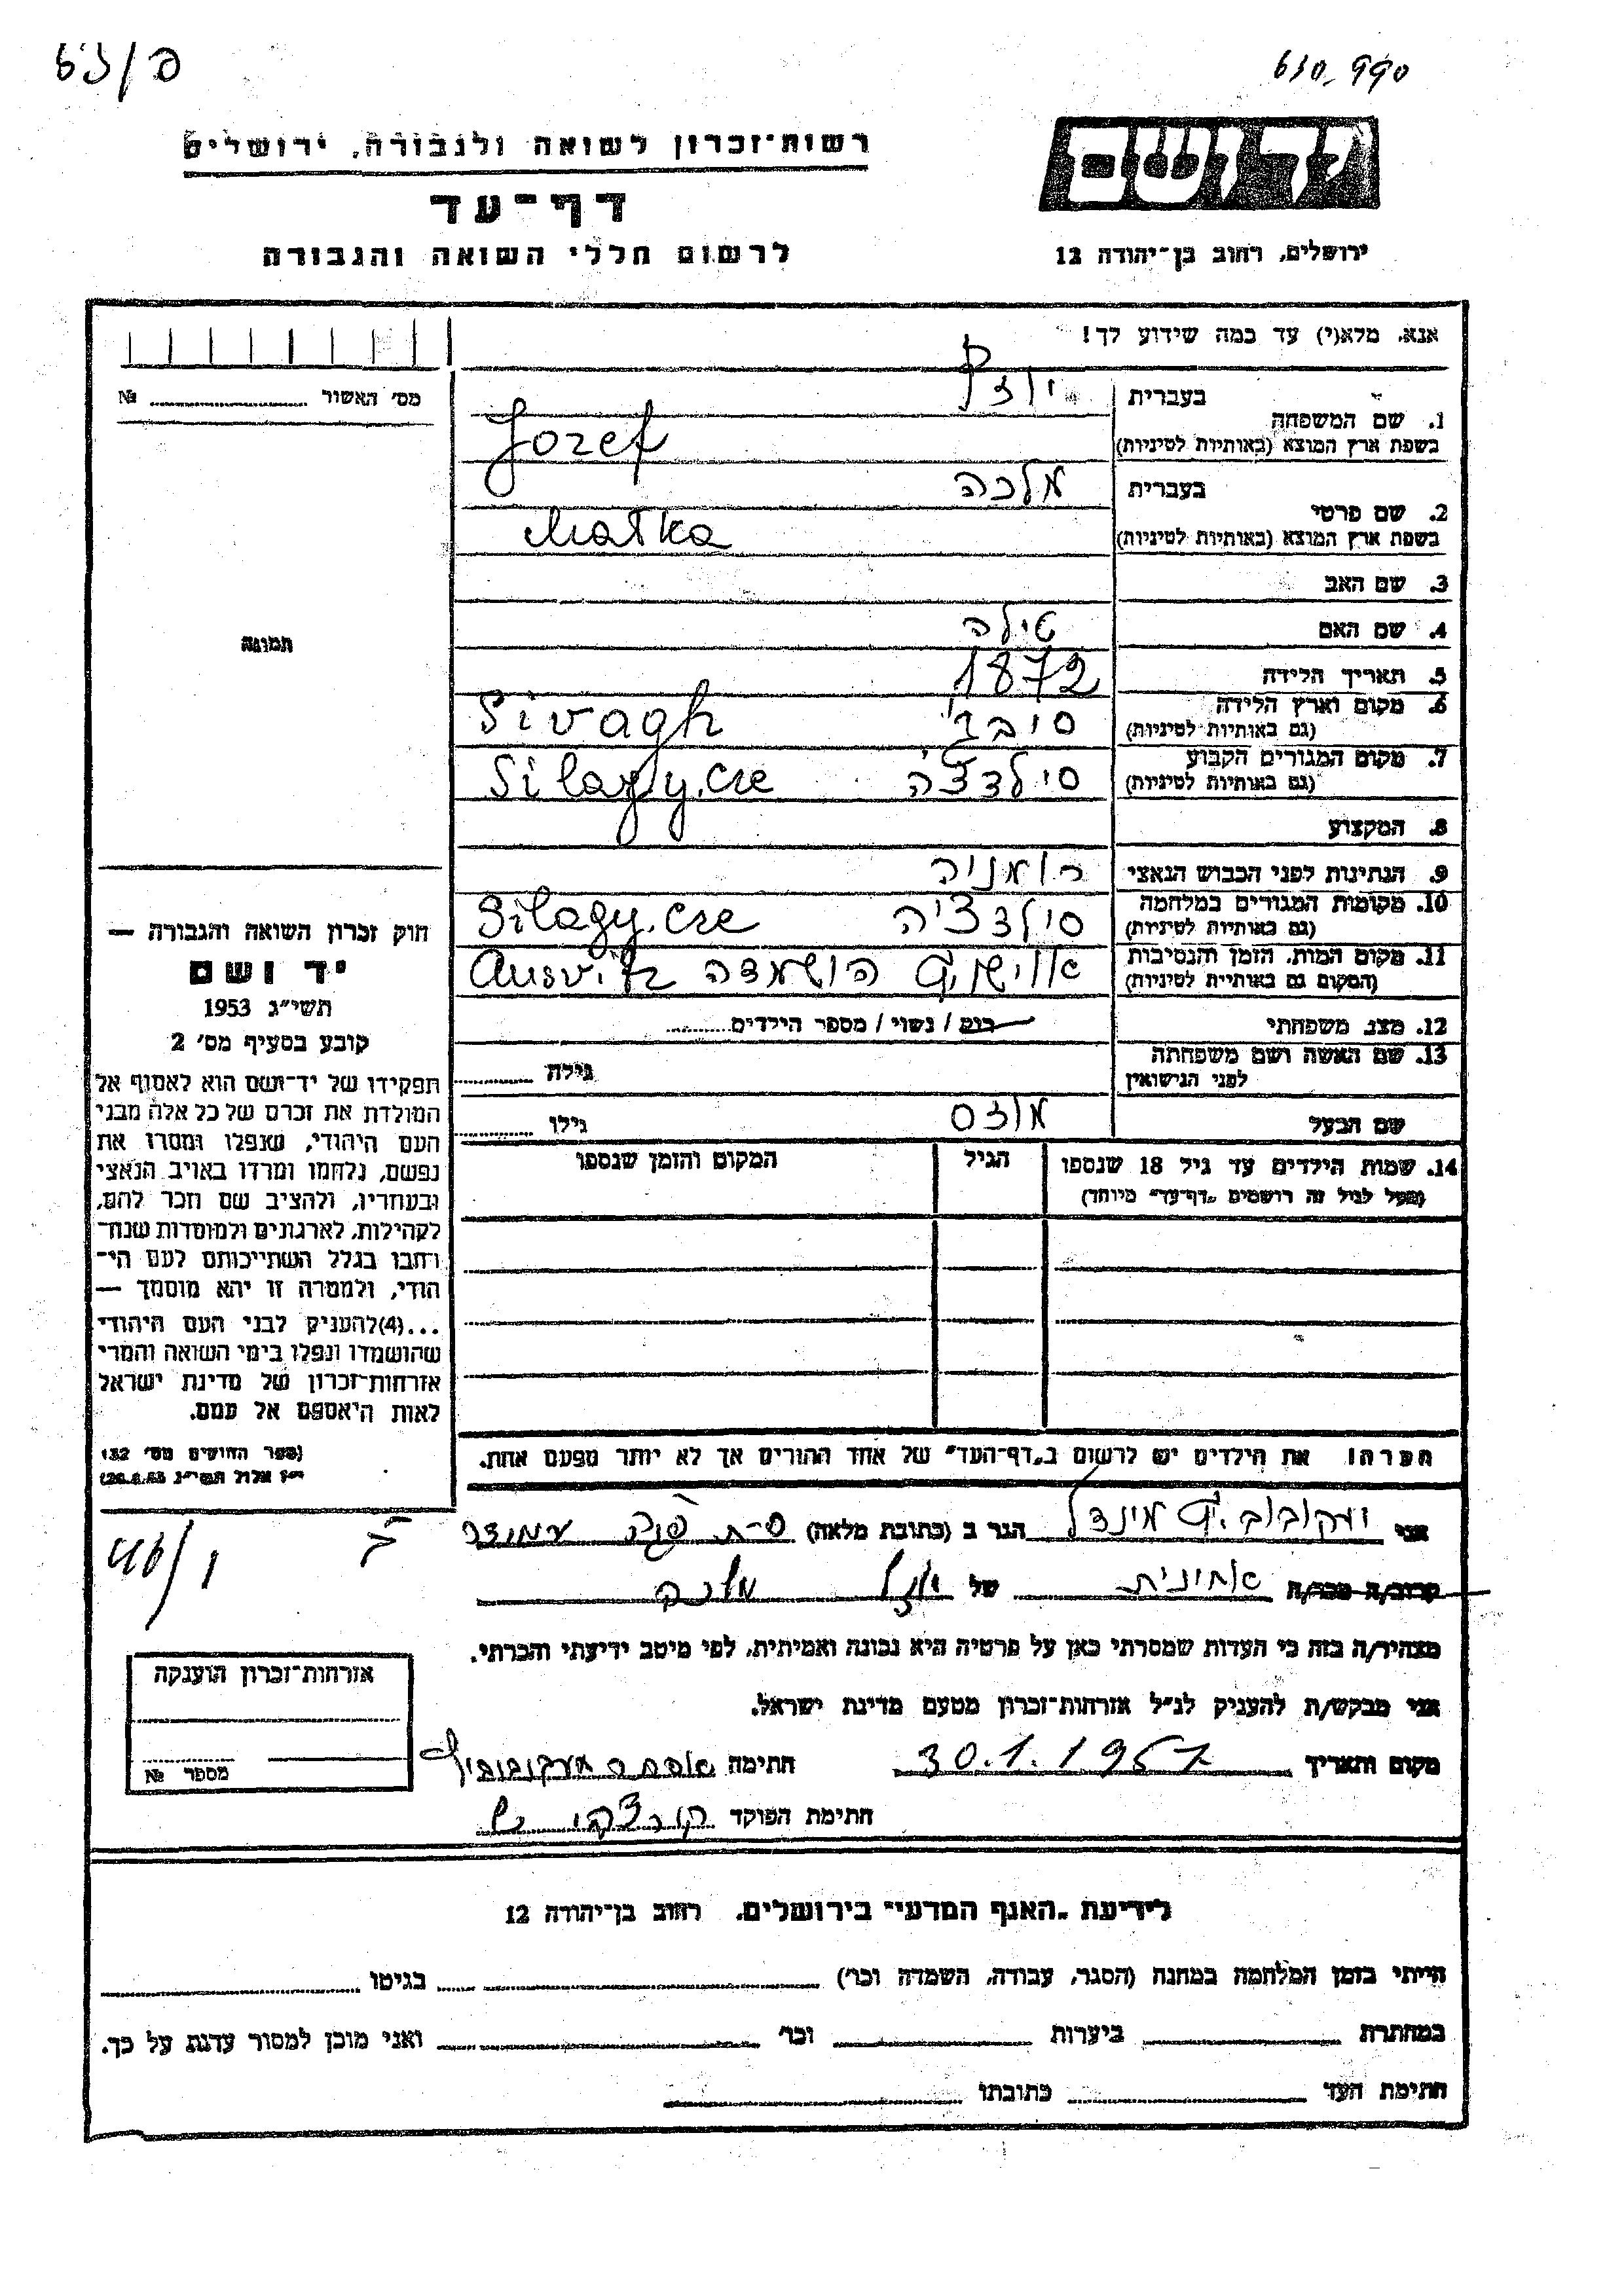 פ/63
630,990
רשות־זכרון לשואה ולגבורה, ירושלים
יד ושם
דף־עד
לרשום חללי השואה והגבורה
ירושלים, רחוב בן־יהודה 12
אנא, מלא(י) עד כמה שידוע לך!
מס׳ האשור № 
1. שם המשפחה
בעברית יוזף
בשפת ארץ המוצא (באותיות לטיניות) Jozef
2. שם פרטי
בעברית מלכה
בשפת ארץ המוצא (באותיות לטיניות) Malka
3. שם האב
תמונה
4. שם האם טילה
5. תאריך הלידה 1872
6. מקום וארץ הלידה
(גם באותיות לטיניות) סיבג׳ Sivagh
7. מקום המגורים הקבוע
(גם באותיות לטיניות)
8. המקצוע
9. הנתינות לפני הכבוש הנאצי רומניה
10. מקומות המגורים במלחמה
(גם באותיות לטיניות)
11. מקום המות, הזמן והנסיבות
(המקום גם באותיות לטיניות) הושמדה
12. מצב משפחתי רווק / נשוי / מספר הילדים
13. שם האשה ושם משפחתה
לפני הנישואין גילה
שם הבעל גילו
14. שמות הילדים עד גיל 18 שנספו הגיל המקום והזמן שנספו
(מעל לגיל זה רושמים „דף־עד״ מיוחד)
חוק זכרון השואה והגבורה —
יד ושם
תשי״ג 1953
קובע בסעיף מס׳ 2
תפקידו של יד־ושם הוא לאסוף אל
המולדת את זכרם של כל אלה מבני
העם היהודי, שנפלו ומסרו את
נפשם, נלחמו ומרדו באויב הנאצי
ובעוזריו, ולהציב שם וזכר להם,
לקהילות, לארגונים ולמוסדות שנח־
רבו בגלל השתייכותם לעם הי־
הודי, ולמטרה זו יהא מוסמך —
...(4)להעניק לבני העם היהודי
שהושמדו ונפלו בימי השואה והמרי
אזרחות־זכרון של מדינת ישראל
לאות היאספם אל עמם.
(ספר החוקים מס׳ 132
י״ז אלול תשי״ג 28.8.53)
הערה: את הילדים יש לרשום ב„דף־העד״ של אחד ההורים אך לא יותר מפעם אחת.
אני יעקובוביץ מינדל הגר ב (כתובת מלאה)
קרוב/ה מכר/ה של מלכה
מצהיר/ה בזה כי העדות שמסרתי כאן על פרטיה היא נכונה ואמיתית, לפי מיטב ידיעתי והכרתי.
אני מבקש/ת להעניק לנ״ל אזרחות־זכרון מטעם מדינת ישראל.
מקום ותאריך 30.1.1957 חתימה
חתימת הפוקד
אזרחות־זכרון הוענקה
מספר №
לידיעת „האגף המדעי״ בירושלים, רחוב בן־יהודה 12
הייתי בזמן המלחמה במחנה (הסגר, עבודה, השמדה וכו׳) בגיטו
במחתרת ביערות וכו׳ ואני מוכן למסור עדות על כך.
חתימת העד כתובתו